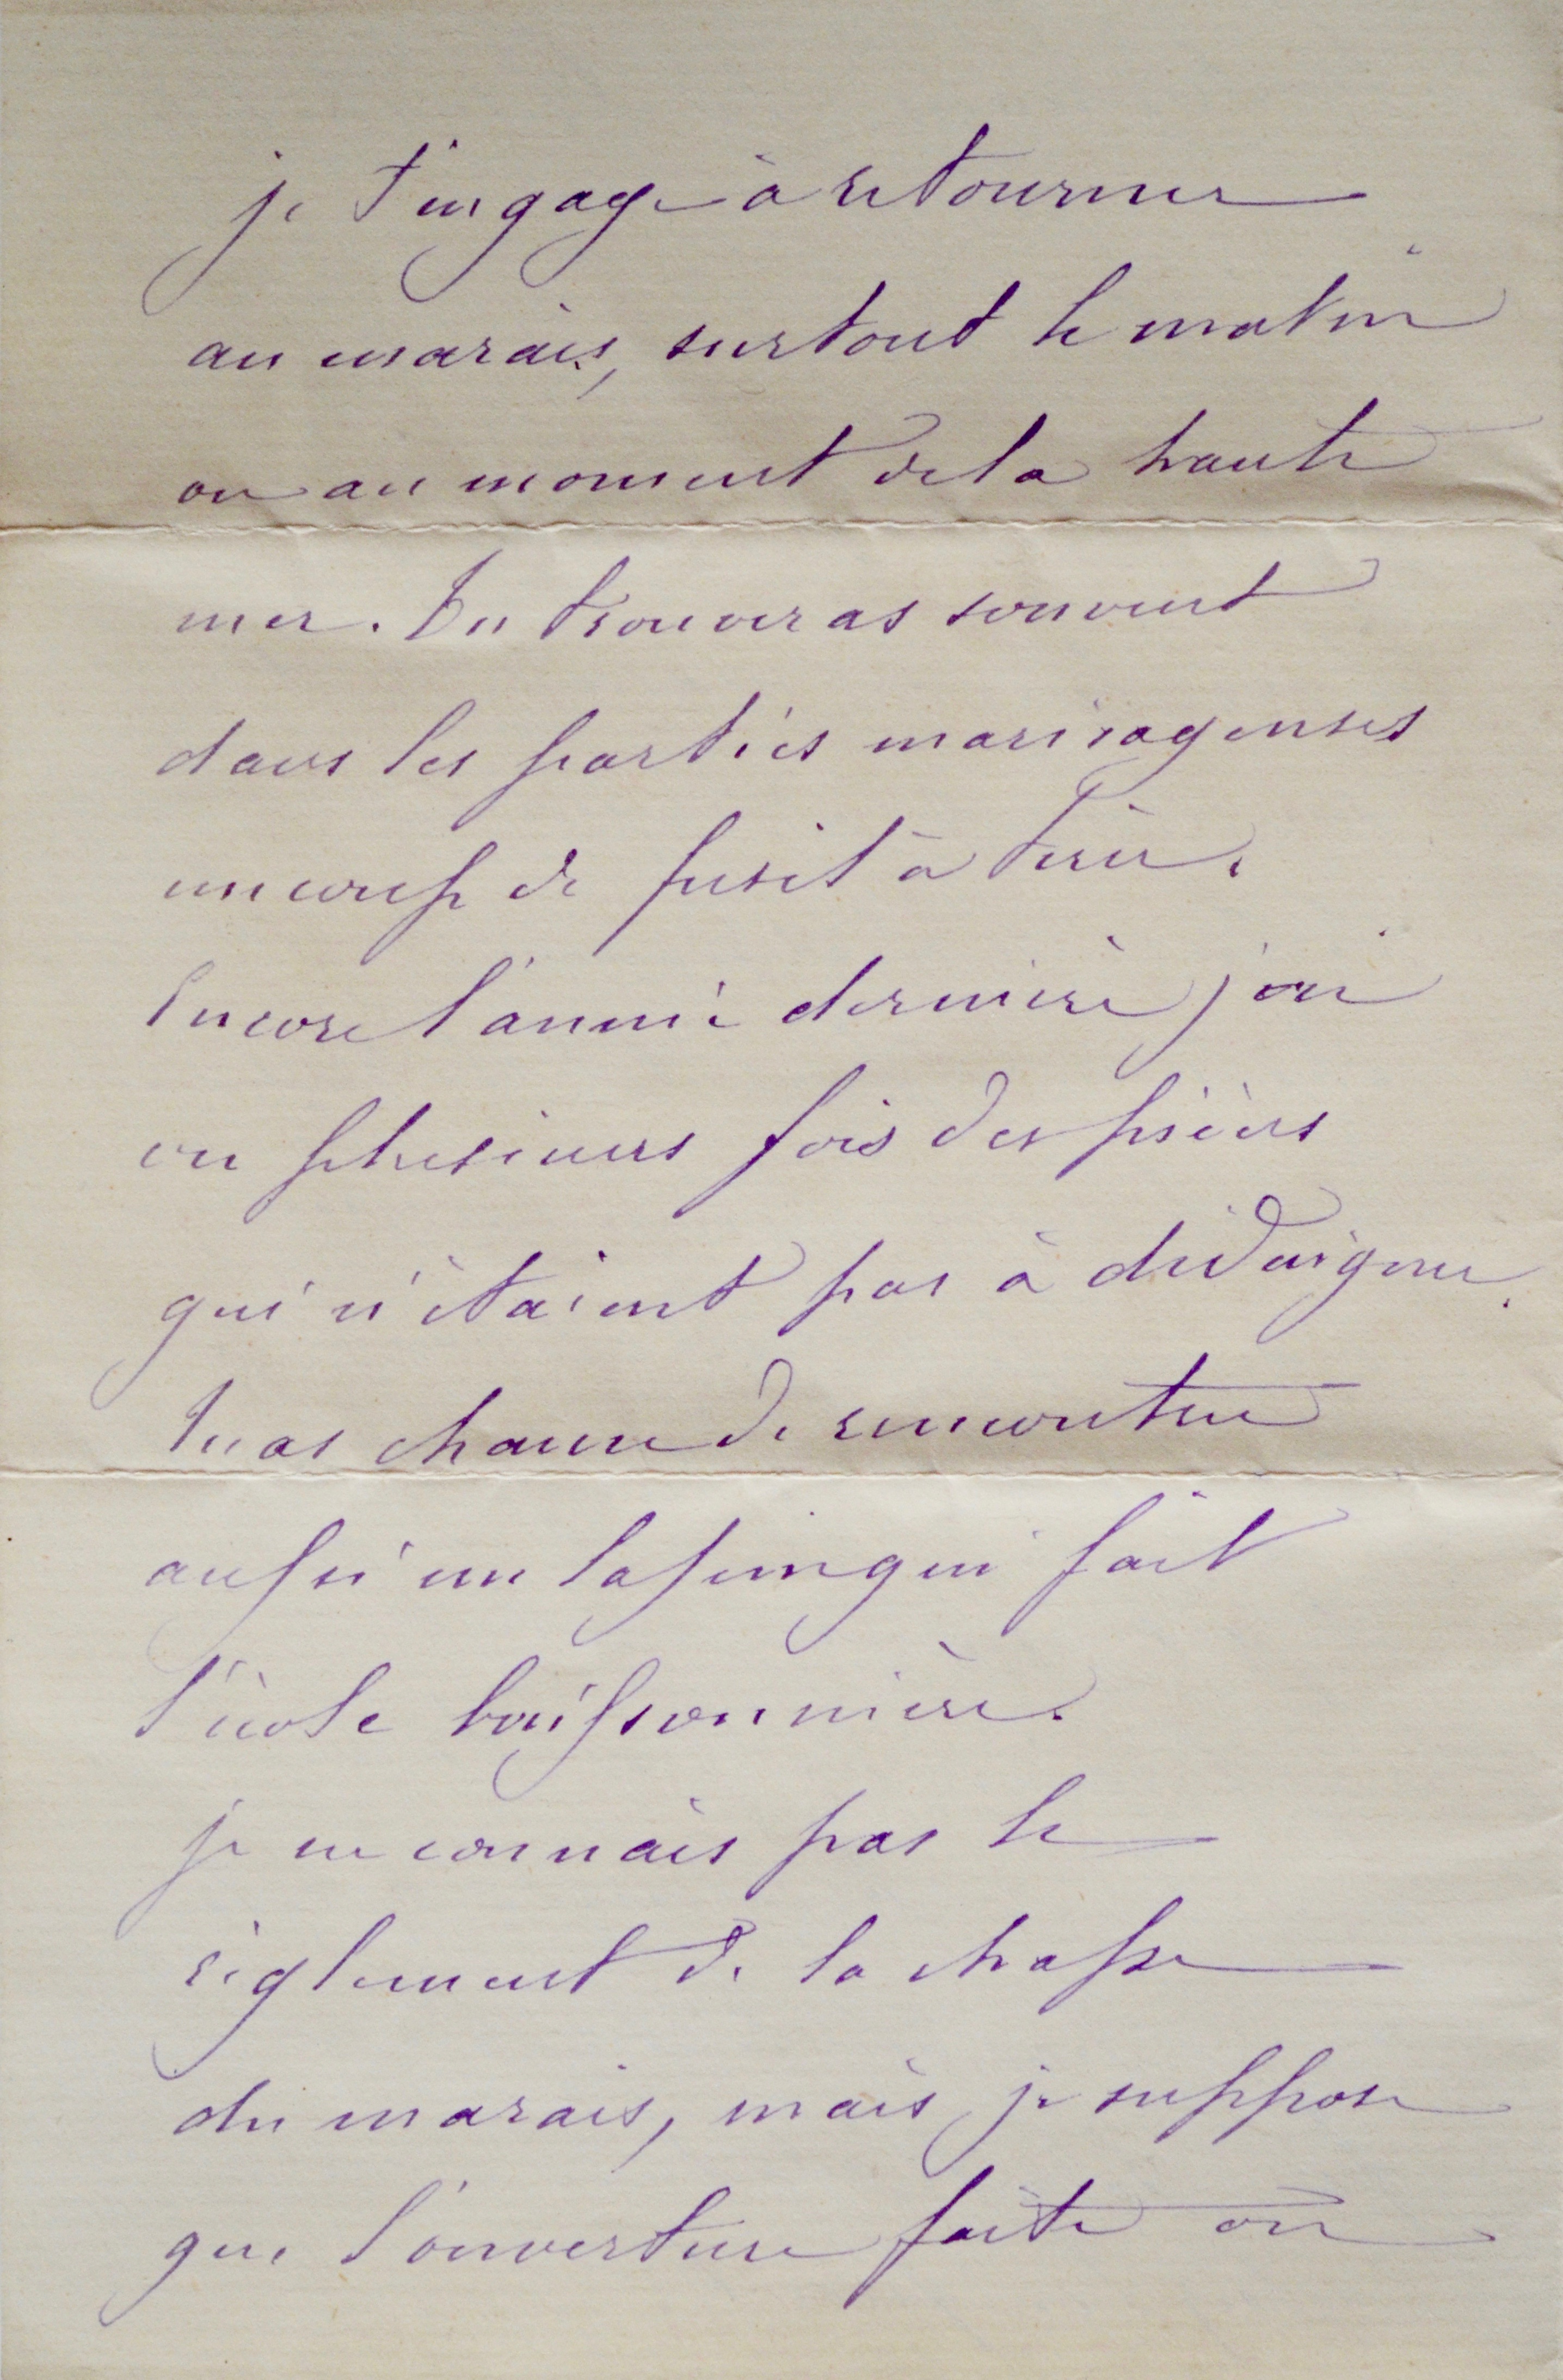 je t'engage à retourner
au marais, surtout le matin
ou au moment de la haute
mer. Tu trouveras souvent
dans les parties marécageuses
un coup de fusil à tirer.
Encore l'année dernière j'ai
vu plusieurs fois des pièces
qui n'étaient pas à dédaigner.
Tu as chance de rencontrer
aussi un lapin qui fait
l'école buissonnière.
je ne connais pas le
règlement de la chasse
du marais, mais je suppose
que l'ouverture faite on